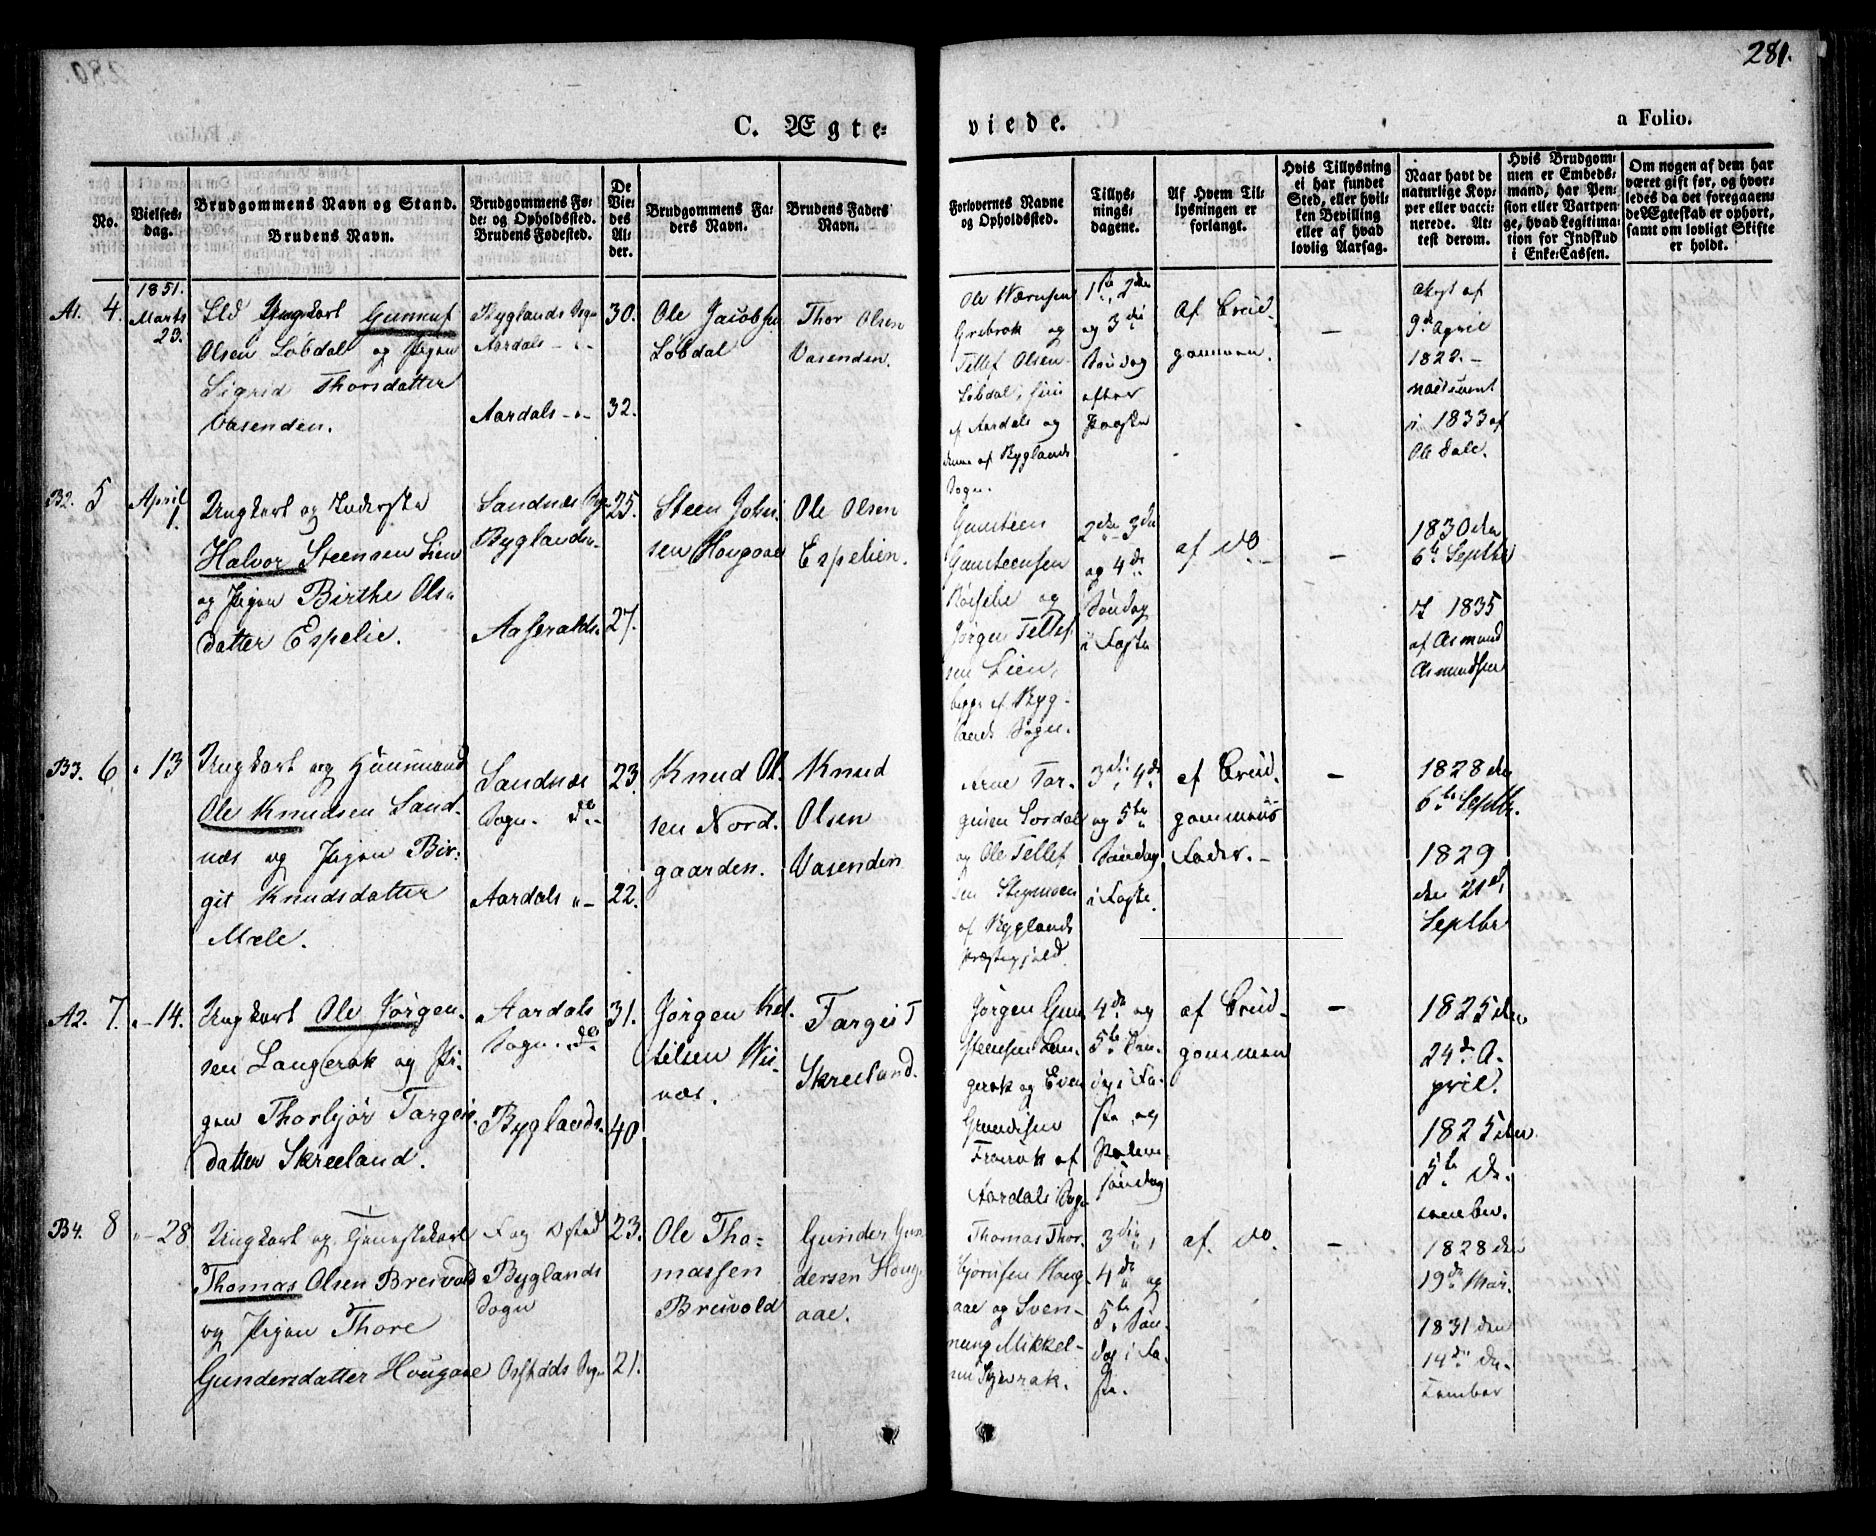 281.
C. Ægte=
viede.
a Folio.
No.
Vielses-
dag.
Brudgommens Navn og Stand.
Brudens Navn.
Brudgommens Fø-
de= og Opholdssted.
Brudens Fødested.
De
Vie-
des
Al-
der.
Brudgommens Fa-
ders Navn.
Brudens Faders
Navn.
Forlovernes Navne
og Opholdssted.
Tillys-
nings-
dagene.
Af Hvem Til-
lysningen er
forlangt.
Hvis Tillysning
ei har fundet
Sted, eller hvil-
ken Bevilling
eller af hvad
lovlig Aarsag.
Naar havt de
naturlige Kop-
per eller vacci-
nerede. At-
test derom.
Hvis Brudgom-
men er Embeds-
mand, har Pen-
sion eller Vartpen-
ge, hvad Legitima-
tion for Indskud
i Enke-Cassen.
Om nogen af dem har
været gift før, og hvor-
ledes da det foregaaen-
de Ægteskab er ophørt,
samt om lovligt Skifte
er holdt.
1851.
A1. 4. Marts
23.
Ungkarl Gunnuf
Olsen Løbdal og Pigen
Sigrid Thorsdatter
Vasenden.
Byglands Sogn
Aardals - " -
Aardals - " -
30.
32.
Ole Jacobsen
Løbdal
Thor Olsen
Vasenden.
Ole
Grebrok og
Tellef Olsen
Løbdal,
af Aardals og
denne af Byglands
Sogn.
1ste, 2den
og 3die
Søndag
efter
Paaske
Af Brud-
gommen.
-
af
9de April
1822. -
i 1833 af
Ole Dale.
B2. 5 April
1.
Ungkarl og Inderste
Halvor Steensen Lien
og Pigen Birthe Ols-
datter Espelie.
Sandnæs Sogn
Byglands
Aaseralds.
25.
27.
Steen John-
sen Hougaae
Ole Olsen
Espelien.
Gunsteen
Gunsteensen
og
Jørgen Tellef-
sen Lien,
begge af Byg-
lands Sogn.
2den - 3die
og 4de
Søndag
i Faste
af do
-
1830 den
6te Septbr
I 1835
af Asmund
Asmundsen
B3. 6 " 13
Ungkarl og Huusmand
Ole Knudsen Sand-
næs og Pigen Bir-
git Knudsdatter
Mæle.
Sandnæs
Sogn. do
Aardals " -
23.
22.
Knud Ol-
sen Nord-
gaarden.
Knud
Olsen
Vasenden
Arne Tar-
gusen Sordal
og Ole Tellef-
sen
af Byglands
Præstegjæld.
3die, 4de
og 5te
Søndag
i Faste.
af Brud-
gommens
Fader. -
-
1828 den
6te Septbr.
1829
den 21de
Septbr
A2. 7. " - 14.
Ungkarl Ole Jørgen-
sen Langerak og Pi-
gen Thorbjør Targeis-
datter Skreeland.
Aardals
Sogn. do
Byglands.
31.
40
Jørgen Ket-
tilsen
næs.
Targei T
Skreeland.
Jørgen Gun-
steensen Lan-
gerak og Even
Gundersen
Frøirak af
Aardals Sogn
4de og
5te Søn-
dag i Fa-
ste, og
Palme-
søndag
af Brud-
gommen
-
1825 den
24de A-
pril.
1825 den
5te De-
cember.
B4. 8 " - 28
Ungkarl og
Thomas Olsen Breivold
og Pigen Thore
Gundersdatter Hougaae
Byglands
Sogn
Sogn
23.
21.
Ole Tho-
massen
Breivold
Gunder Gun-
dersen Houg-
aae.
Thomas Thor-
bjørnsen Houg-
aae og Sven-
nung Mikkel-
sen
3die,
4de og
5te Søn-
dag i Fa-
ste.
af do.
-
1828 den
19de Mar.
1831 den
14de De-
cember